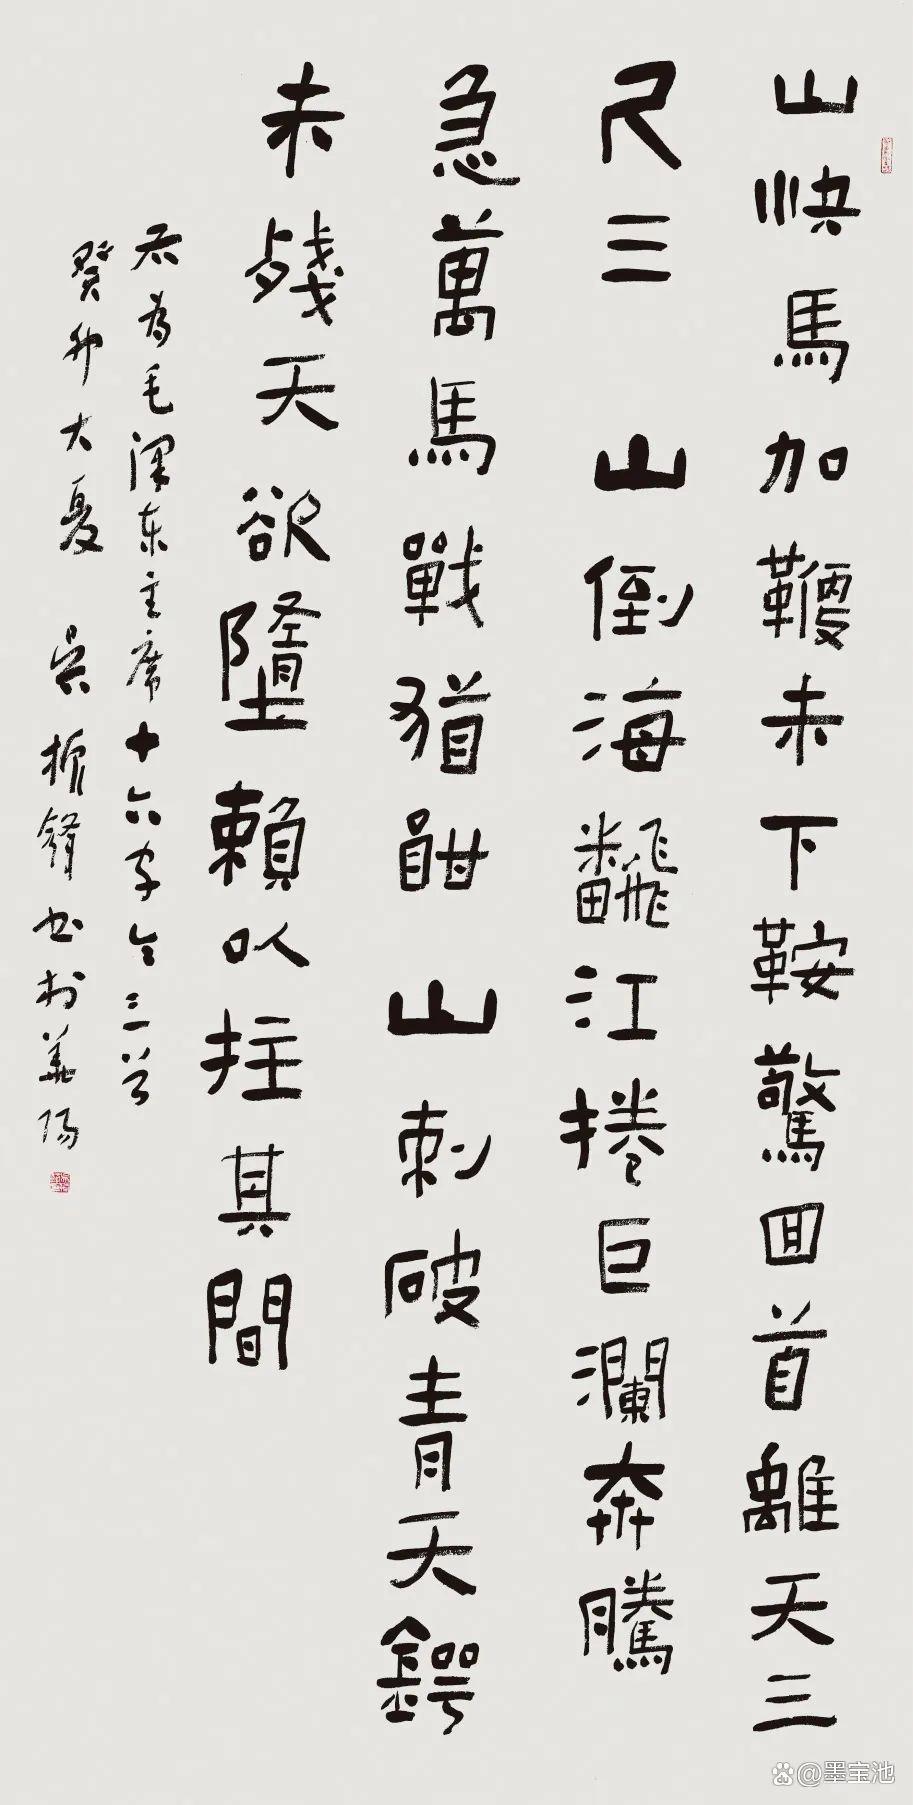 山快馬加鞭未下鞍驚回首離天三
尺三 山倒海飜江捲巨瀾奔騰
急萬馬戰猶酣 山刺破青天鍔
未殘天欲墮賴以拄其間
右为毛泽东主席十六字令三首
癸卯大夏 吴振锋书于美阳
@墨宝池